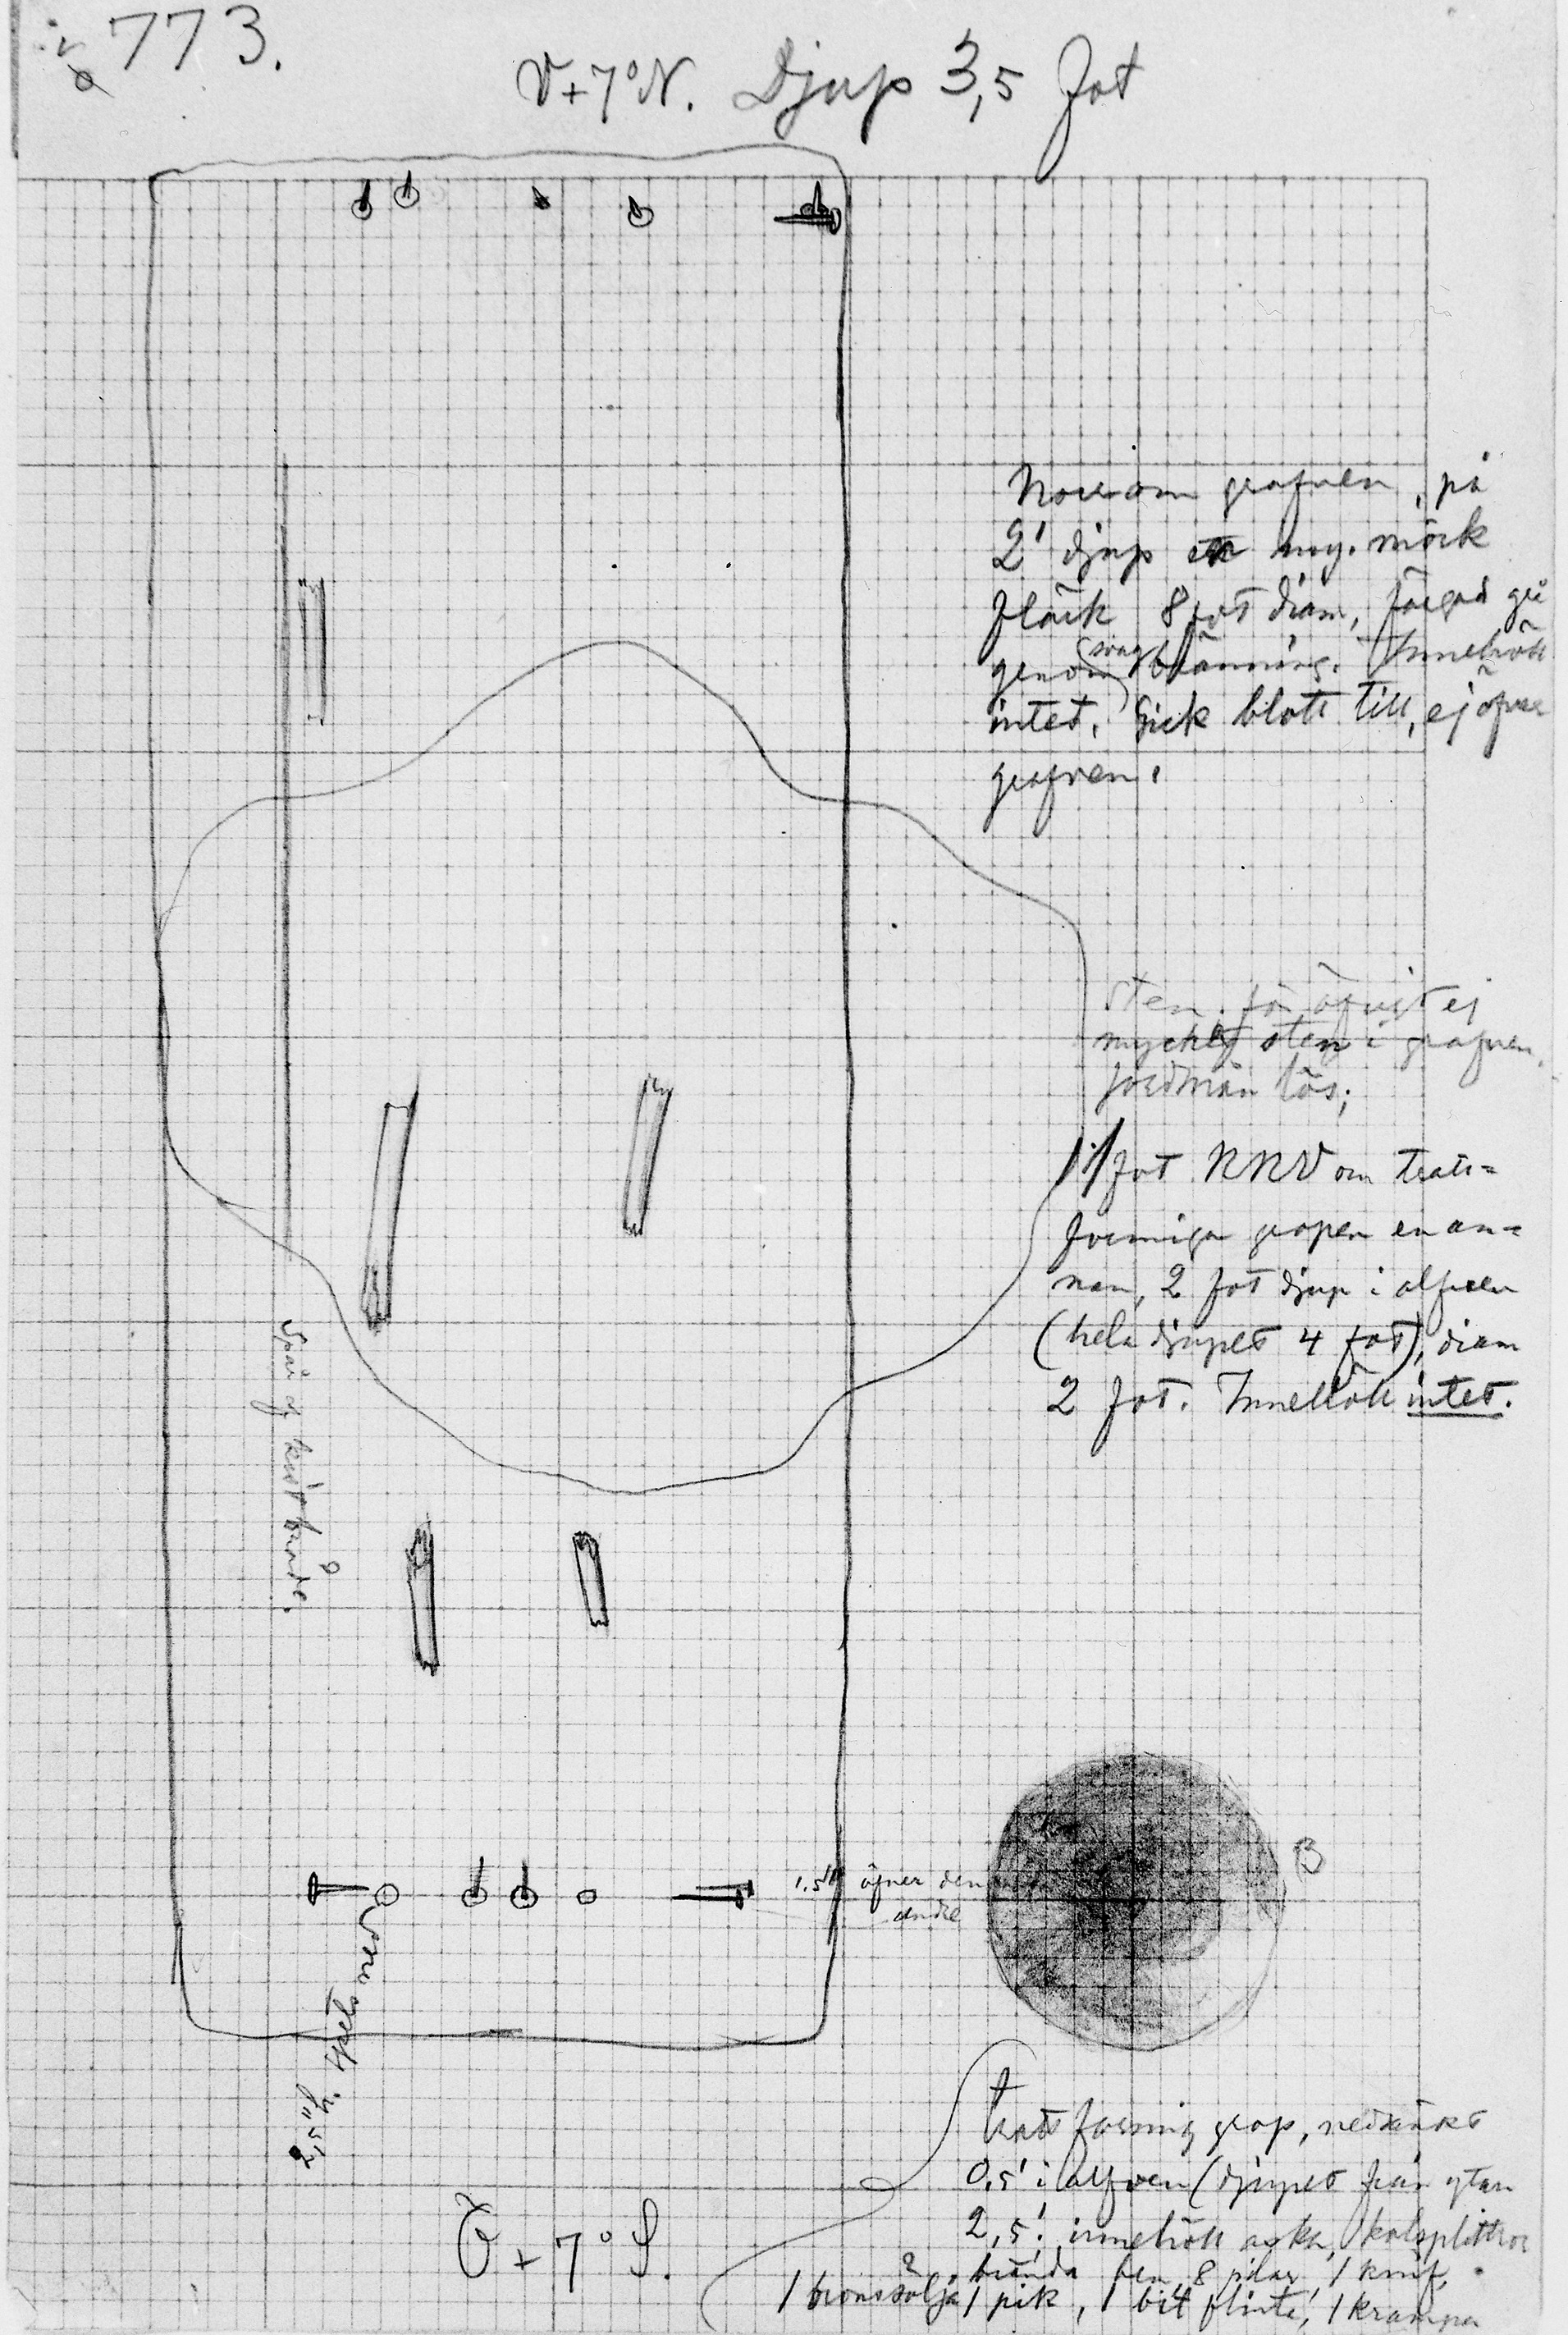 773.
V+7°N. Djup 3,5 fot
Norr om grafven, på
2' djup en my. mörk
fläck 8 fot diam, färgad
genom svag bränning. Innehöll
intet. Gick blott till, ej öfver
grafven.
sten, för öfrigt ej
mycket sten i grafven.
jordmån lös;
fot NNV om tratt=
formiga gropen en an=
nan, 2 fot djup i alfven
(hela djupet 4 fot), diam
2 fot. Innehöll intet.
Spår af
1.5" öfver den
andre
B
2,5" h. spets ned
Ö+7°S.
trattformig grop, nedsänkt
0.5' i alfven (djupet från ytan
2,5'. innehöll aska, kolsplittror
brända ben 8 pilar, 1 knif,
1 bronssölja? 1 pik, 1 bit flinta, 1 krampa